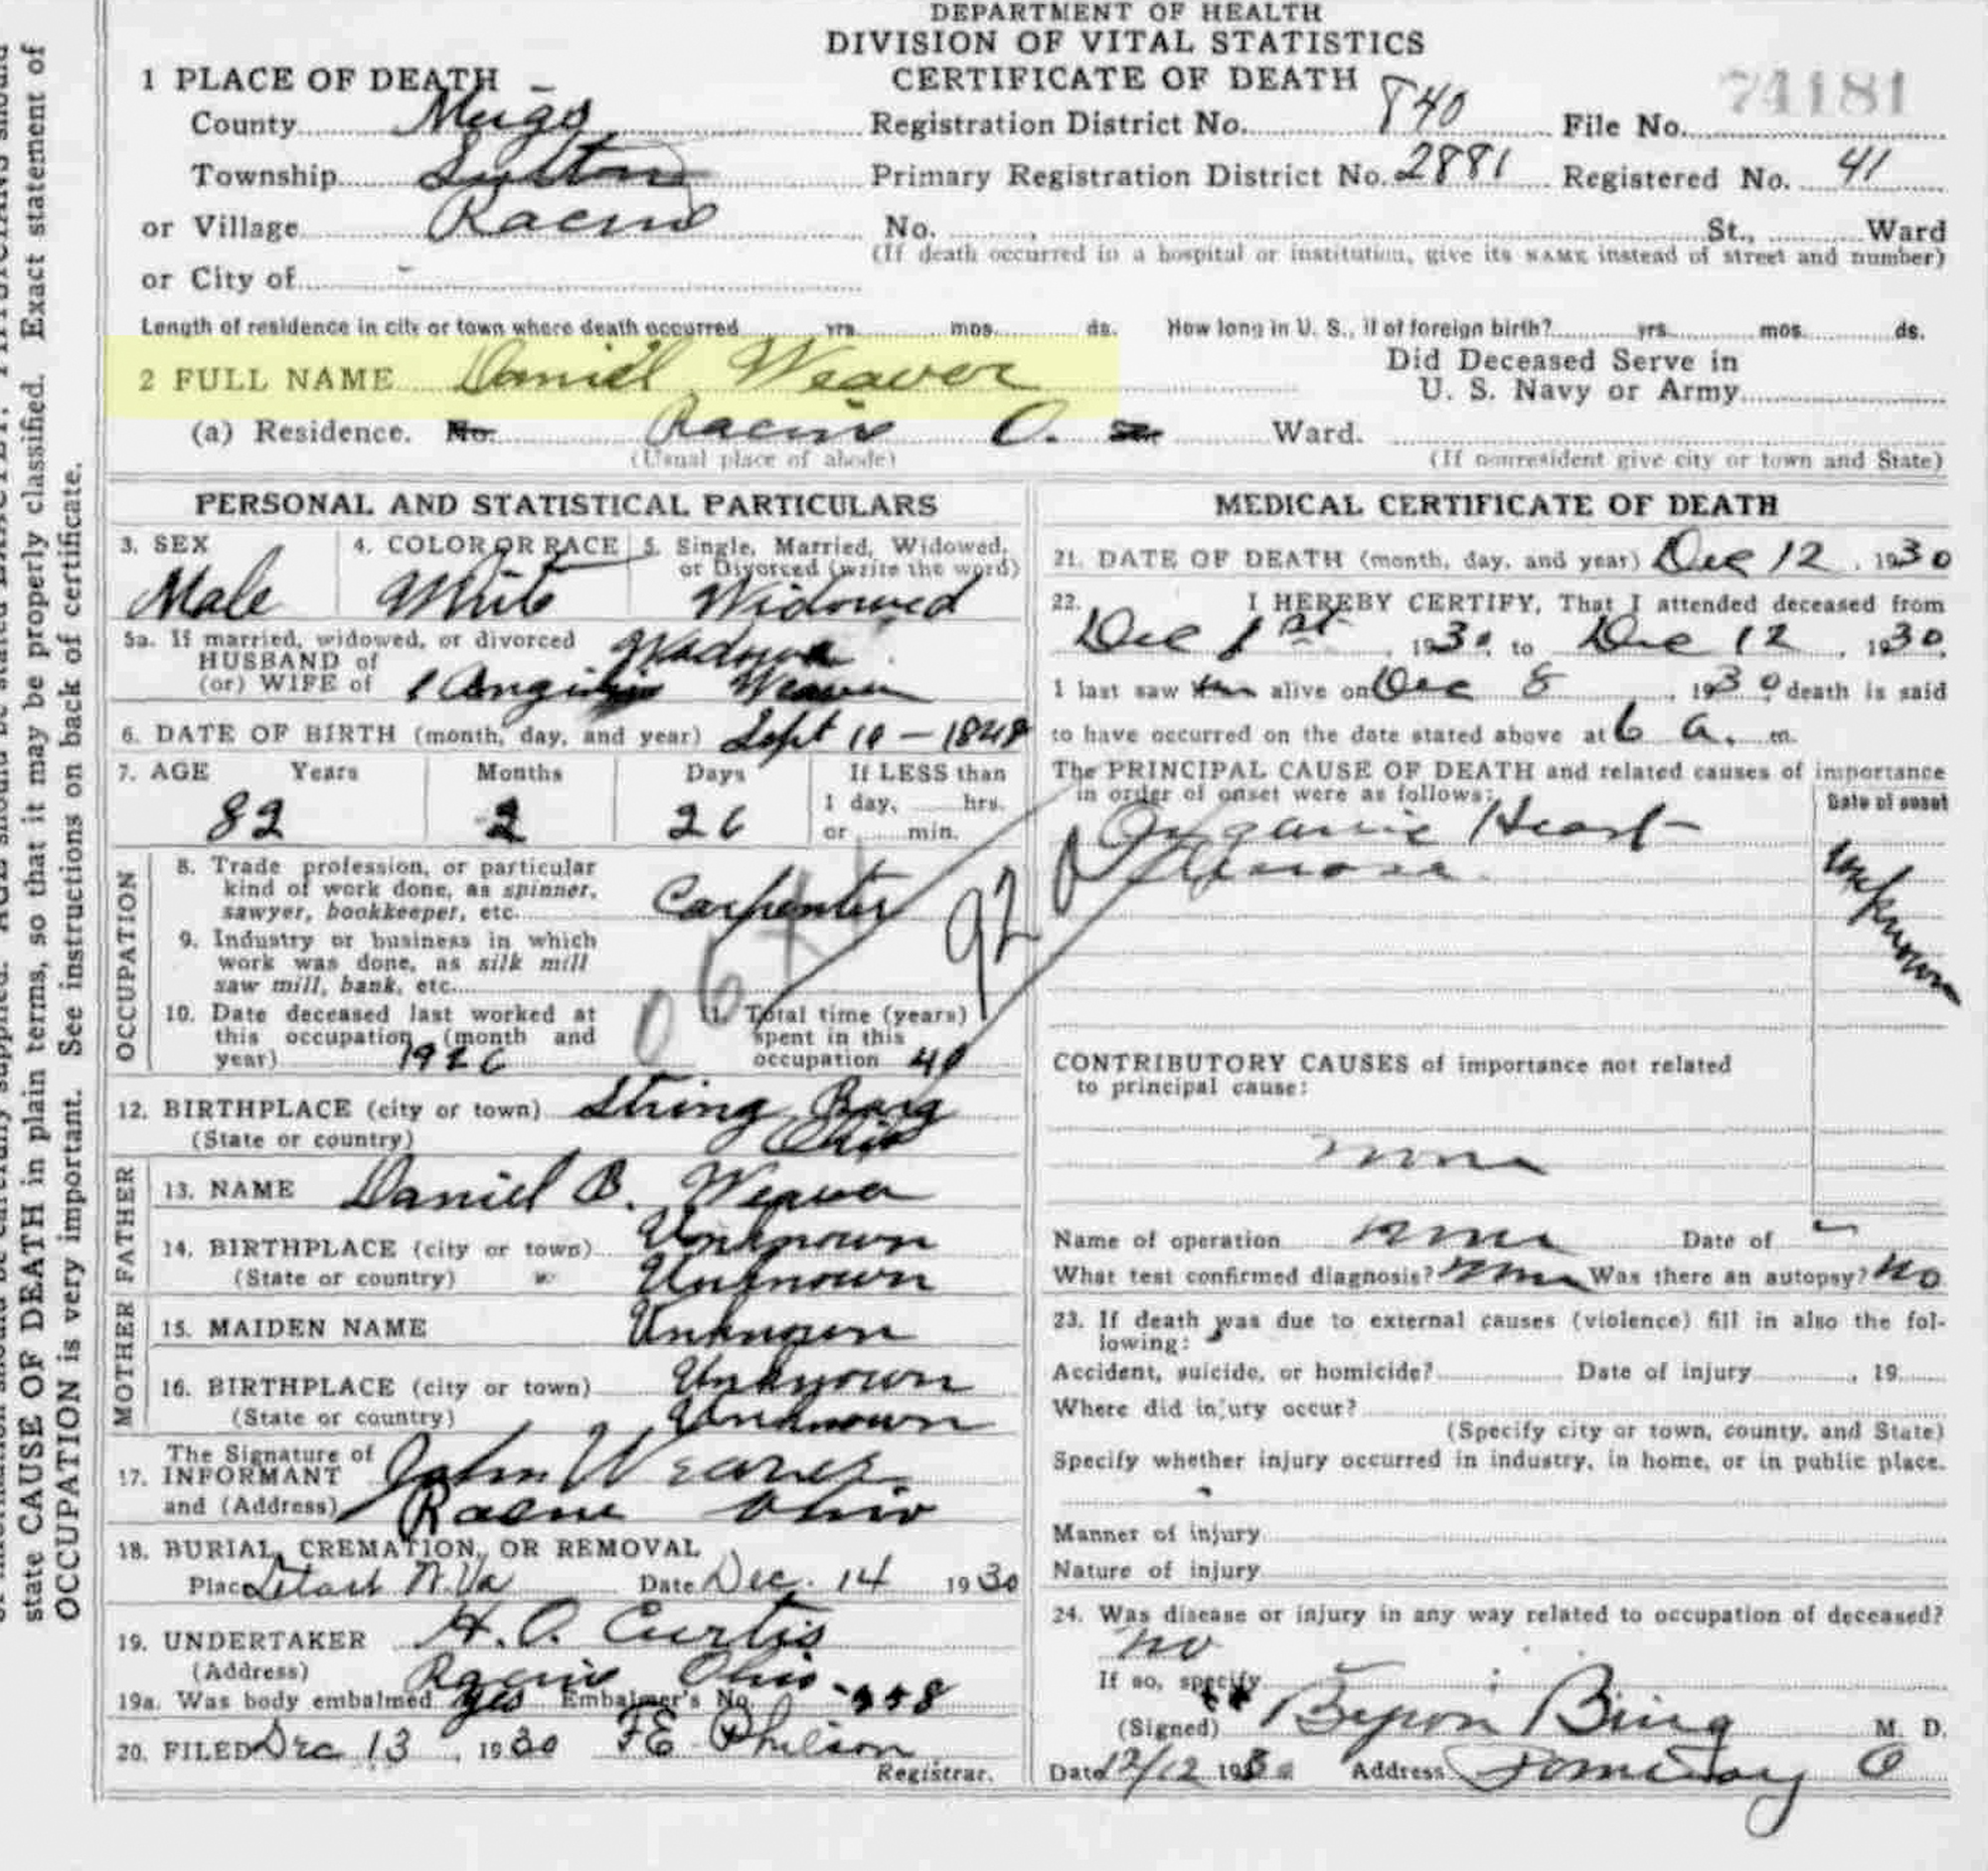 DEPARTMENT OF HEALTH
DIVISION OF VITAL STATISTICS
CERTIFICATE OF DEATH
74181
1 PLACE OF DEATH
County Meigs Registration District No. 840 File No.
Township Sutton Primary Registration District No. 2881 Registered No. 41
or Village Racine No. St., Ward
(If death occurred in a hospital or institution, give its NAME instead of street and number)
or City of
Length of residence in city or town where death occurred yrs. mos. ds. How long in U. S., if of foreign birth? yrs. mos. ds.
2 FULL NAME Daniel Weaver
Did Deceased Serve in
U. S. Navy or Army
(a) Residence. No. Racine O. Ward.
(Usual place of abode) (If nonresident give city or town and State)
PERSONAL AND STATISTICAL PARTICULARS
3. SEX 4. COLOR OR RACE 5. Single, Married, Widowed, or Divorced (write the word)
Male White Widowed
5a. If married, widowed, or divorced
HUSBAND of
(or) WIFE of Weaver
6. DATE OF BIRTH (month, day, and year) Sept 10 - 1848
7. AGE Years Months Days If LESS than
82 2 26 1 day, hrs.
or min.
OCCUPATION
8. Trade profession, or particular
kind of work done, as spinner,
sawyer, bookkeeper, etc. Carpenter
9. Industry or business in which
work was done, as silk mill
saw mill, bank, etc.
10. Date deceased last worked at
this occupation (month and
year) 1926
11. Total time (years)
spent in this
occupation 40
12. BIRTHPLACE (city or town) String
(State or country) Ohio
FATHER
13. NAME Daniel B. Weaver
14. BIRTHPLACE (city or town) Unknown
(State or country) Unknown
MOTHER
15. MAIDEN NAME Unknown
16. BIRTHPLACE (city or town) Unknown
(State or country) Unknown
The Signature of
17. INFORMANT John Weaver
and (Address) Racine Ohio
18. BURIAL, CREMATION, OR REMOVAL
Place Letart W. Va Date Dec. 14 1930
19. UNDERTAKER H. O. Curtis
(Address) Racine Ohio
19a. Was body embalmed yes Embalmer's No.
20. FILED Dec 13, 1930 F E Philson
Registrar.
MEDICAL CERTIFICATE OF DEATH
21. DATE OF DEATH (month, day, and year) Dec 12, 1930
22. I HEREBY CERTIFY, That I attended deceased from
Dec 1st, 1930, to Dec 12, 1930,
I last saw him alive on Dec 8, 1930, death is said
to have occurred on the date stated above at 6 a. m.
The PRINCIPAL CAUSE OF DEATH and related causes of importance
in order of onset were as follows:
Date of onset
Organic Heart
Disease
Unknown
92
CONTRIBUTORY CAUSES of importance not related
to principal cause:
none
Name of operation none Date of
What test confirmed diagnosis? none Was there an autopsy? No
23. If death was due to external causes (violence) fill in also the fol-
lowing:
Accident, suicide, or homicide? Date of injury , 19
Where did injury occur?
(Specify city or town, county, and State)
Specify whether injury occurred in industry, in home, or in public place.
Manner of injury
Nature of injury
24. Was disease or injury in any way related to occupation of deceased?
no
If so, specify
(Signed) Byron Bing M. D.
Date 12/12 1930 Address Pomeroy O
state CAUSE OF DEATH in plain terms, so that it may be properly classified. Exact statement of
OCCUPATION is very important. See instructions on back of certificate.